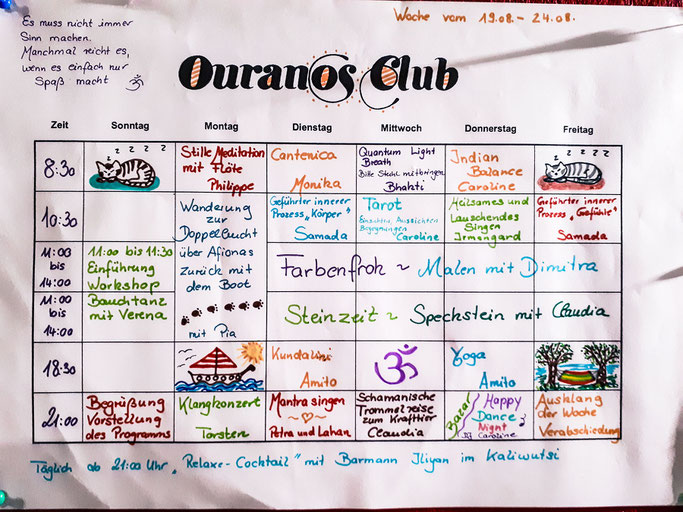 Es muss nicht immer
Sinn machen.
Manchmal reicht es,
wenn es einfach nur
Spaß macht ॐ
Woche vom 19.08. - 24.08.
Ouranos Club
Zeit Sonntag Montag Dienstag Mittwoch Donnerstag Freitag
8:30
z z z z
Stille Meditation
mit Flöte
Philippe
Cantenica
Monika
Quantum Light
Breath
Bitte Stuhl mitbringen
Bhakti
Indian
Balance
Caroline
z z z z
10:30
Wanderung
zur
Doppelbucht
über Afionas
zurück mit
dem Boot
mit Pia
Geführter innerer
Prozess „Körper"
Samada
Tarot
Einsichten, Aussichten
Begegnungen
Caroline
Heilsames und
Lauschendes
Singen
Irmengard
Geführter innerer
Prozess „Gefühle"
Samada
11:00
bis
14:00
11:00 bis 11:30
Einführung
Workshop
Bauchtanz
mit Verena
Farbenfroh ~ Malen mit Dimitra
11:00
bis
14:00
Steinzeit ~ Speckstein mit Claudia
18:30
Kundalini
Amito
ॐ
Yoga
Amito
21:00
Begrüßung
Vorstellung
des Programms
Klangkonzert
Torsten
Mantra singen
~♡~
Petra und Lahan
Schamanische
Trommelreise
zum Krafttier
Claudia
Bazar
Happy
Dance
Night
DJ Caroline
Ausklang
der Woche
Verabschiedung
Täglich ab 21:00 Uhr „Relaxe-Cocktail" mit Barmann Iliyan im Kaliwutsi